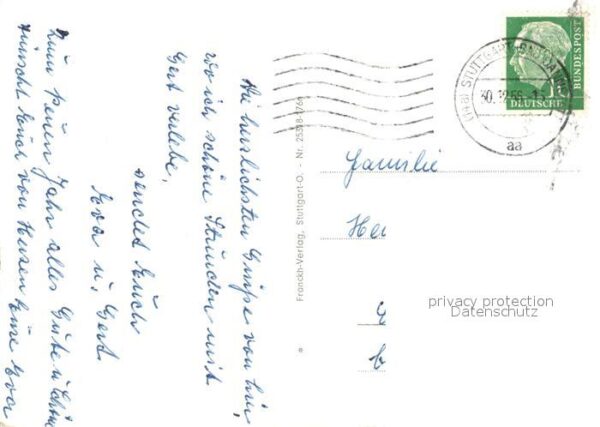 Die herzlichsten Grüße von hier,
wo ich schöne Stunden mit
Gert verlebe,
sendet Euch
Eva u. Gert
Zum neuen Jahr alles Gute
wünscht Euch von Herzen Eure Eva
Franckh-Verlag, Stuttgart-O. - Nr. 25318-1766
STUTTGART-BAD
30.12.56
aa
DEUTSCHE
BUNDESPOST
Familie
privacy protection
Datenschutz